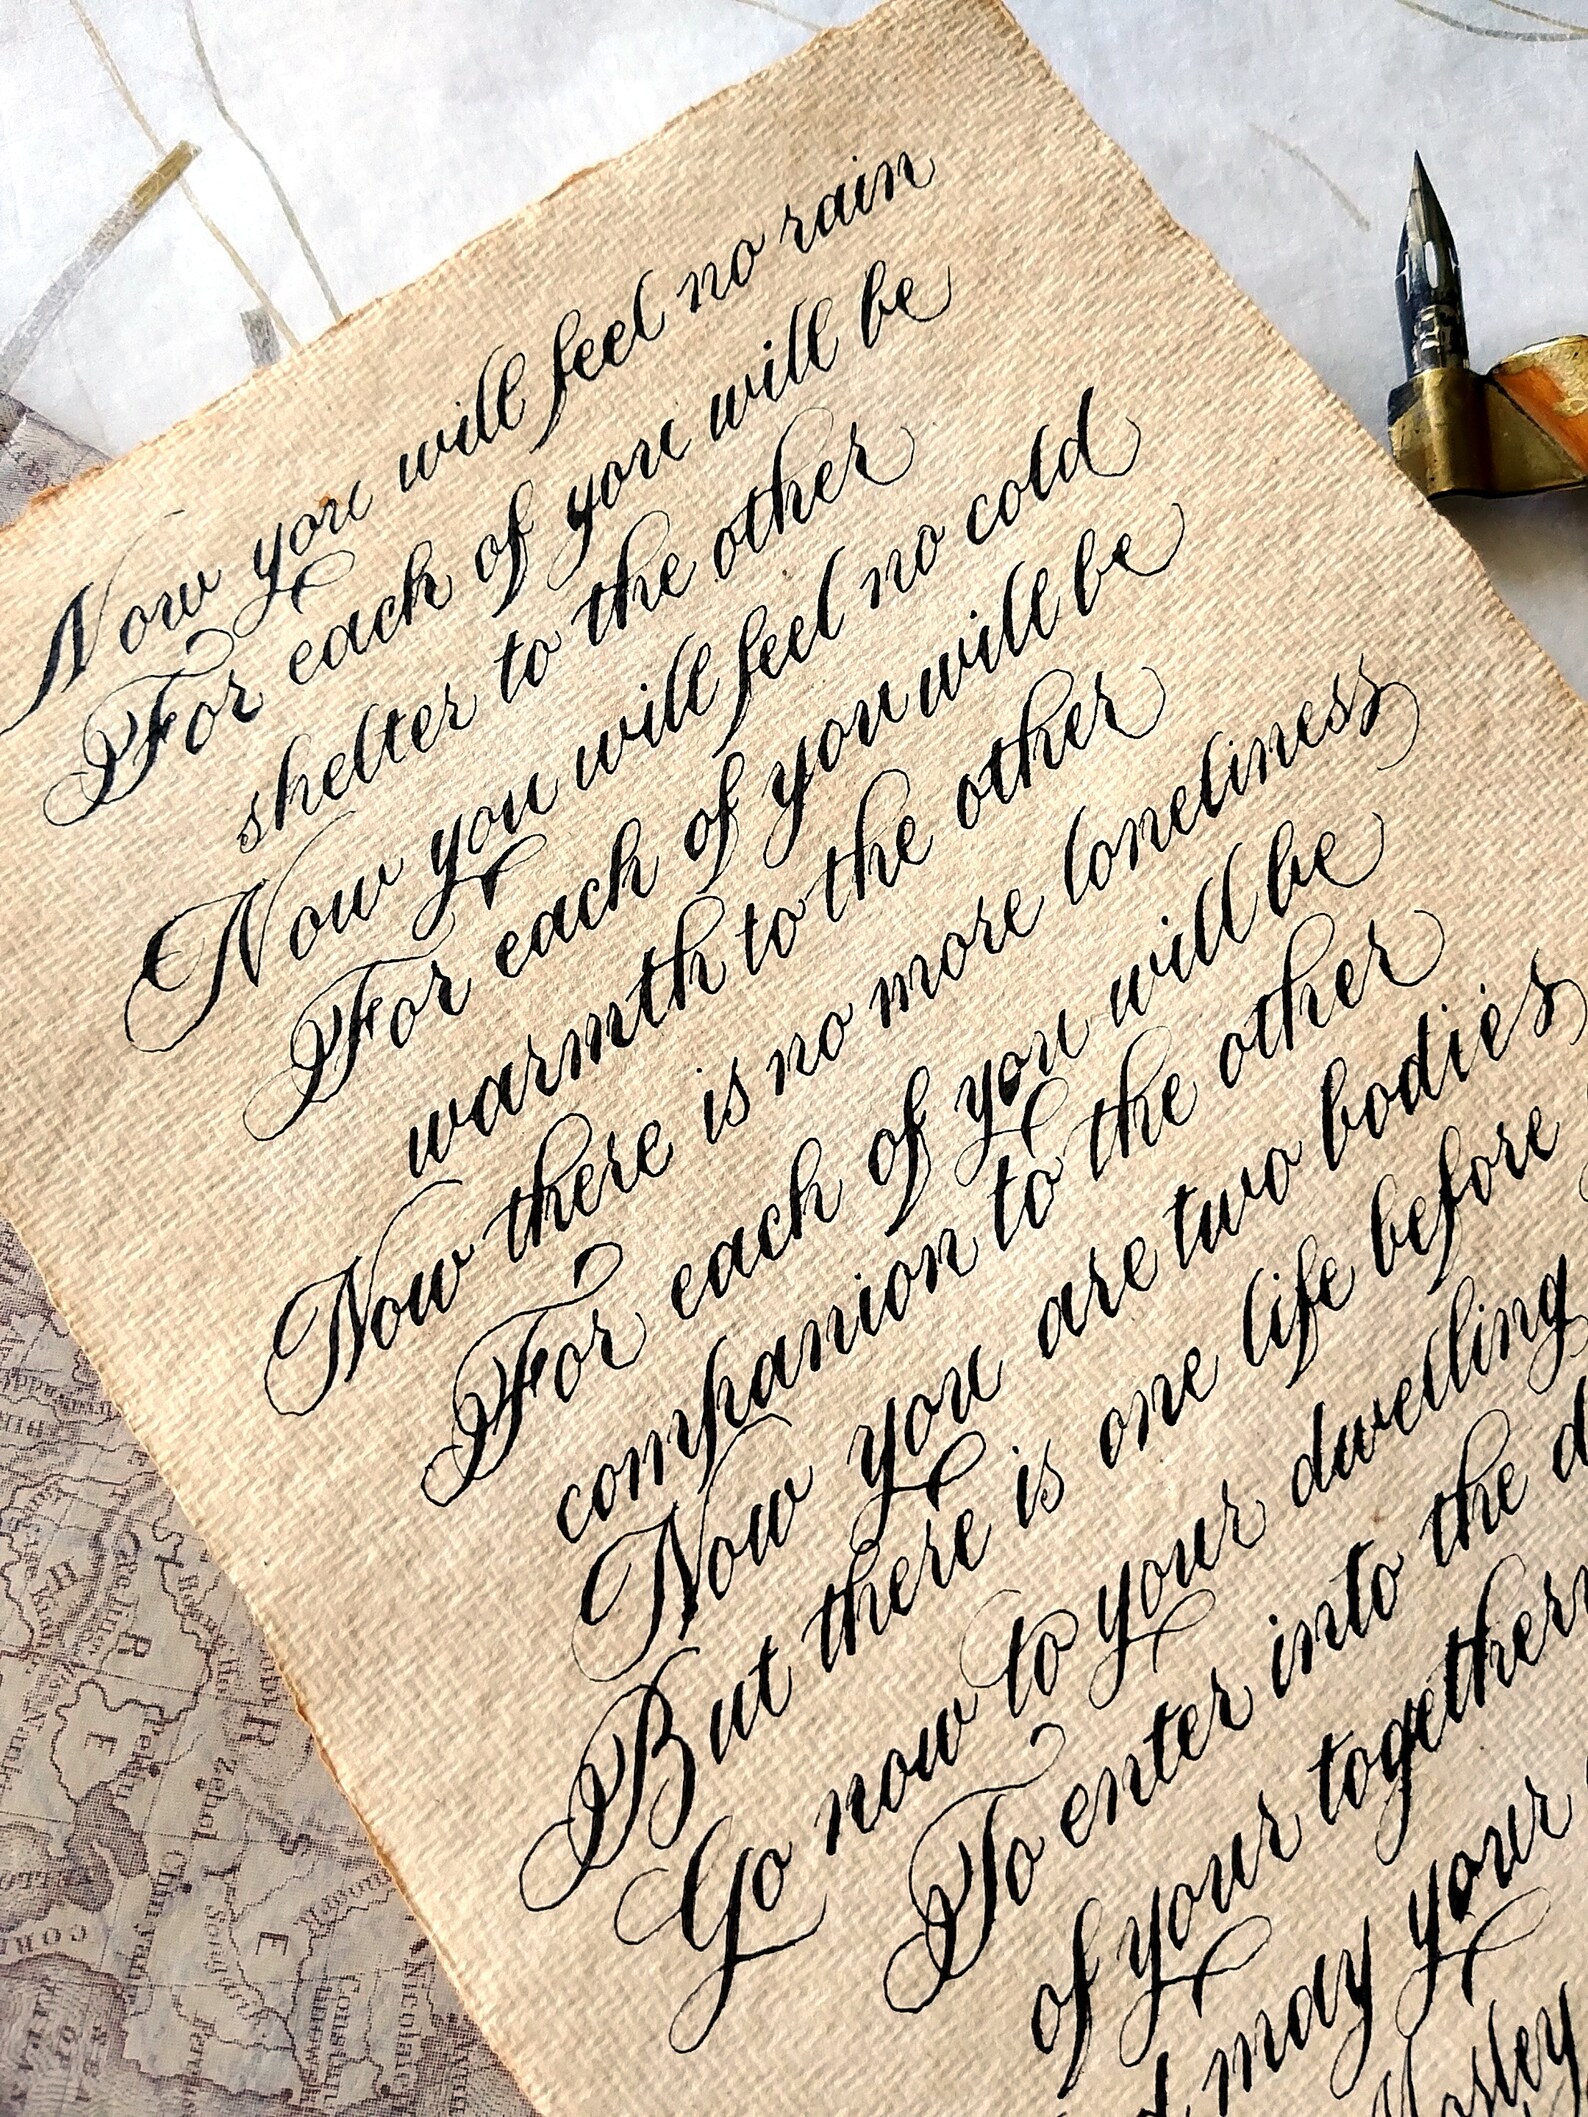 Now you will feel no rain
For each of you will be
shelter to the other
Now you will feel no cold
For each of you will be
warmth to the other
Now there is no more loneliness
For each of you will be
companion to the other
Now you are two bodies
But there is one life before
Go now to your dwelling
To enter into the
of your
may your